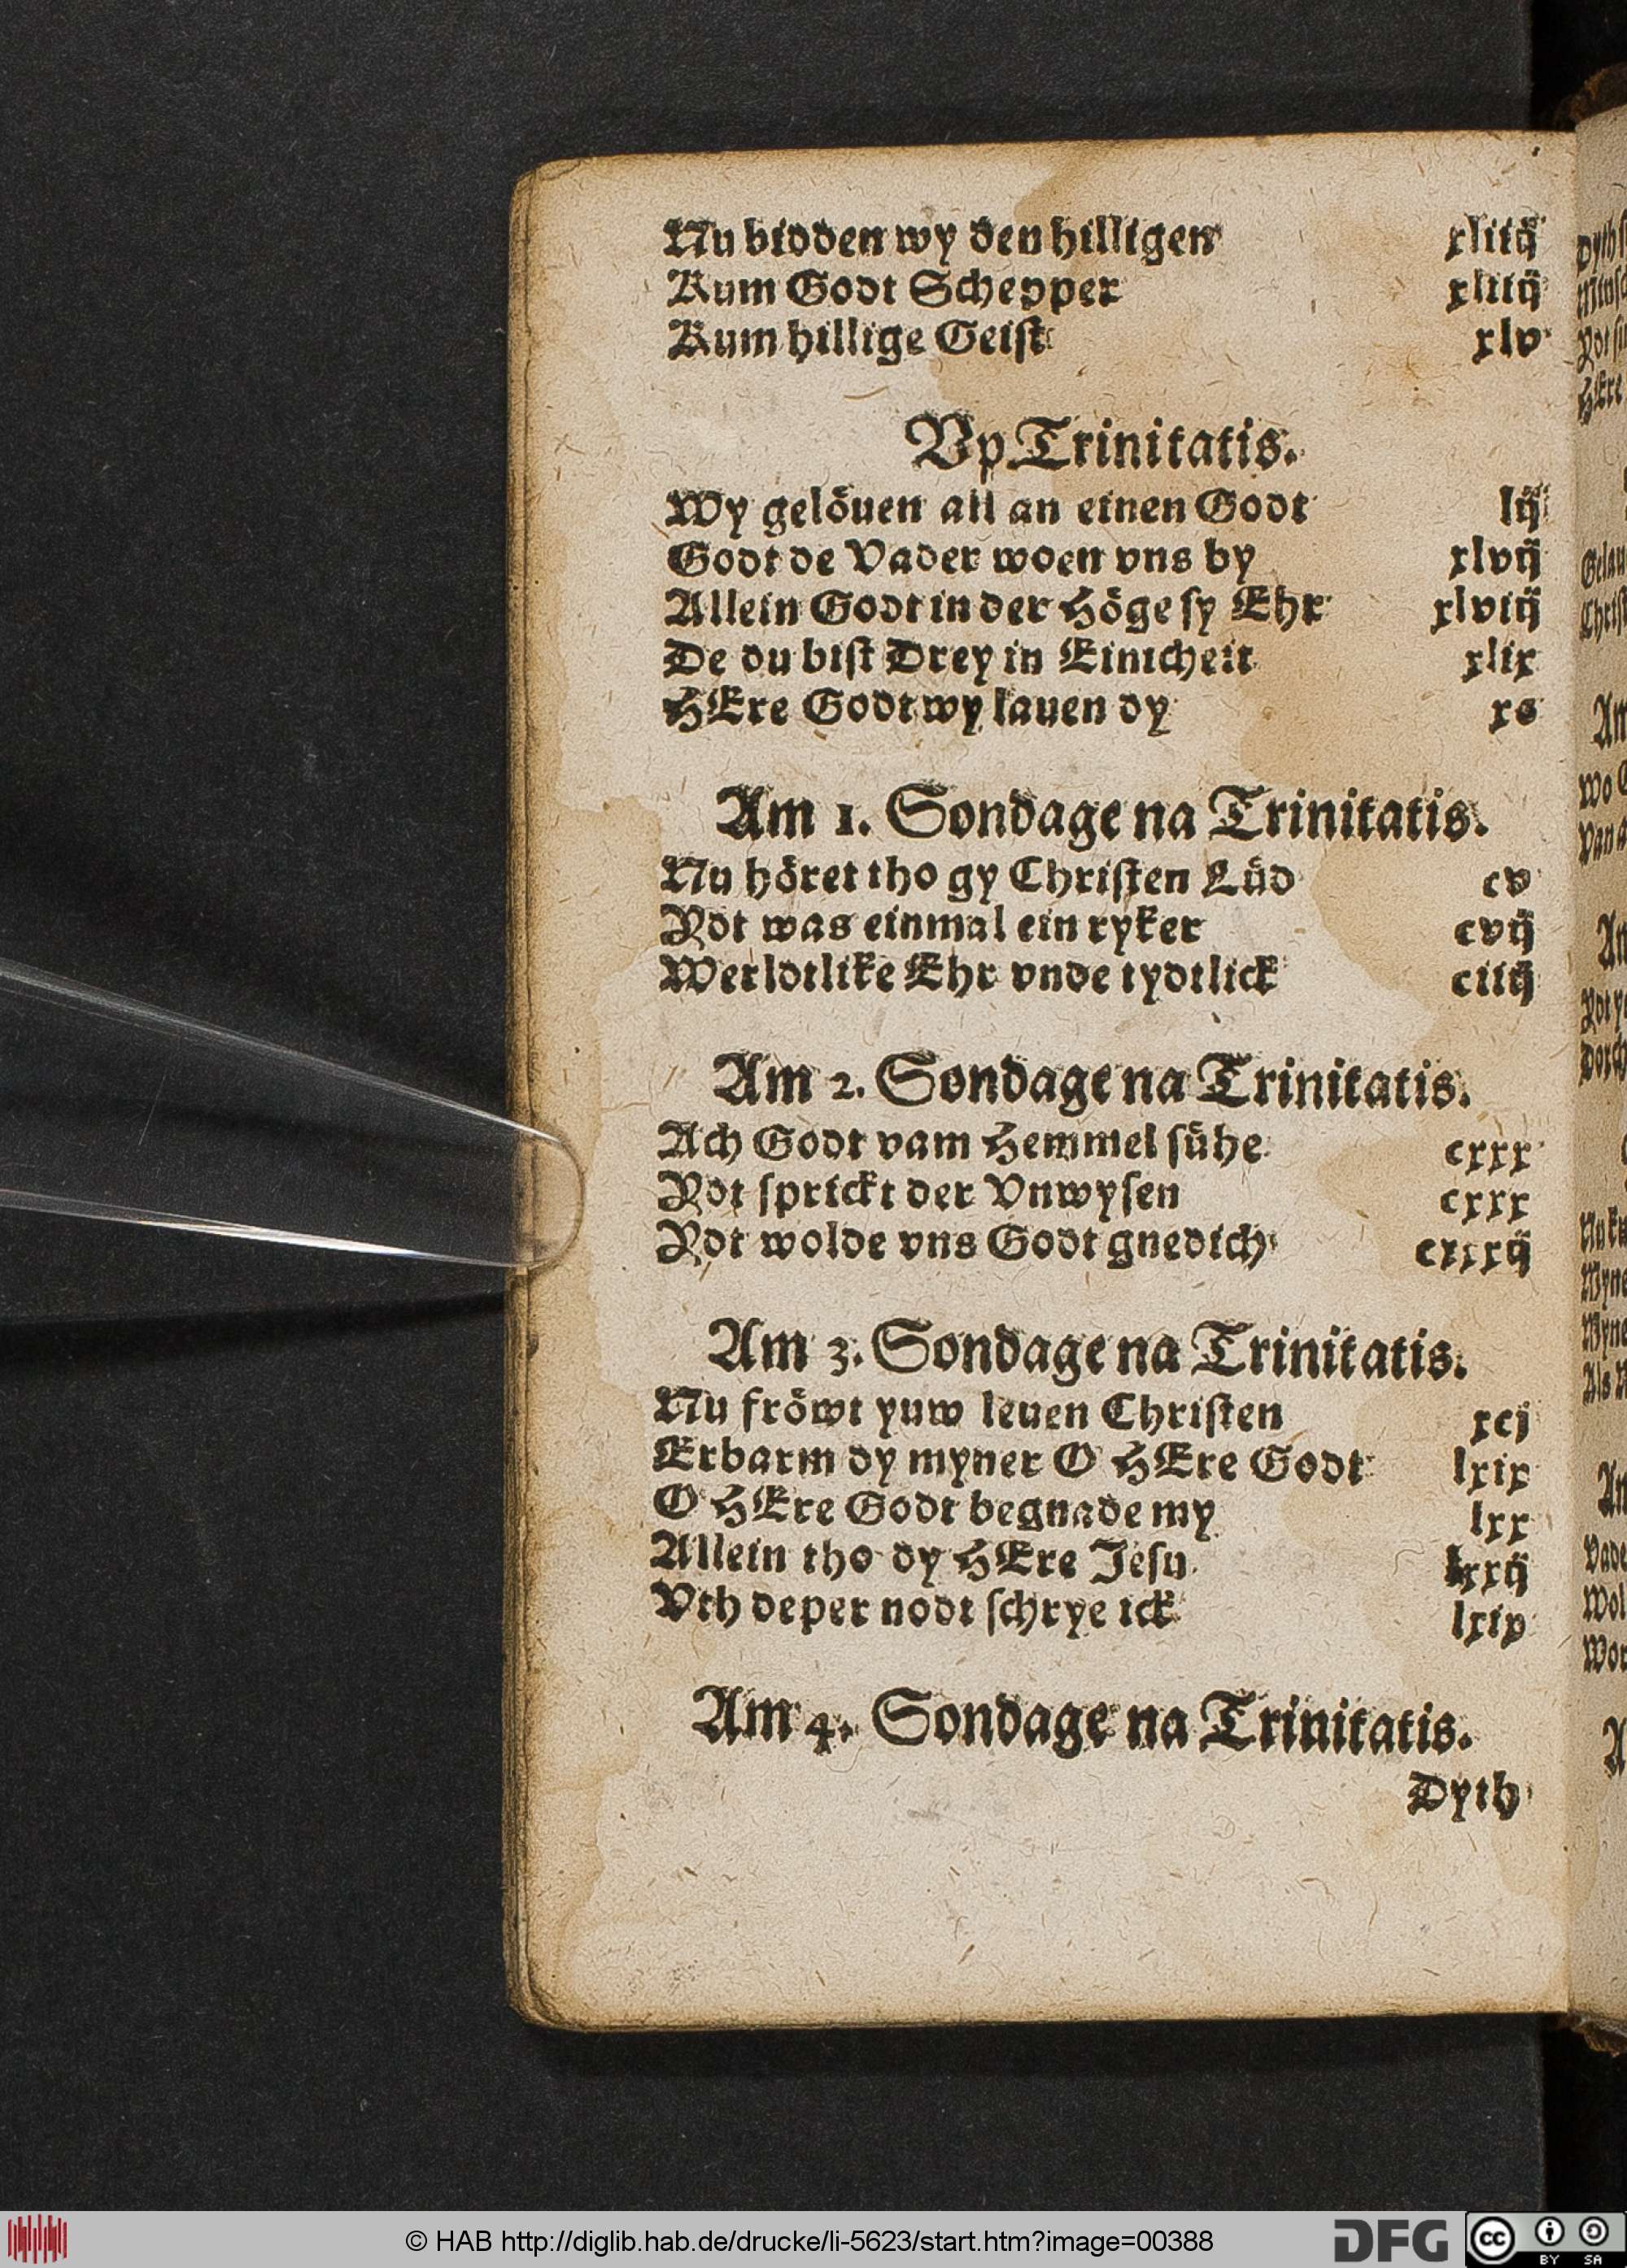 Nu bidden wy den hilligen xliiij
Kum Godt Schepper xliiij
Kum hillige Geist xlv
Vp Trinitatis.
Wy gelöuen all an einen Godt lij
Godt de Vader woen vns by xlvij
Allein Godt in der Höge sy Ehr xlviij
De du bist Drey in Einicheit xlix
HEre Godt wy lauen dy xs
Am 1. Sondage na Trinitatis.
Nu höret tho gy Christen Lüd cv
Ydt was einmal ein ryker cvij
Werldtlike Ehr vnde tydtlick ciiij
Am 2. Sondage na Trinitatis.
Ach Godt vam Hemmel sühe cxxx
Ydt sprickt der Vnwysen cxxx
Ydt wolde vns Godt gnedich cxxxij
Am 3. Sondage na Trinitatis.
Nu fröwt yuw leuen Christen xcj
Erbarm dy myner O HEre Godt lxix
O HEre Godt begnade my lxx
Allein tho dy HEre Jesu lxxij
Vth deper nodt schrye ick lxix
Am 4. Sondage na Trinitatis.
Dyth
© HAB http://diglib.hab.de/drucke/li-5623/start.htm?image=00388
DFG
cc BY SA